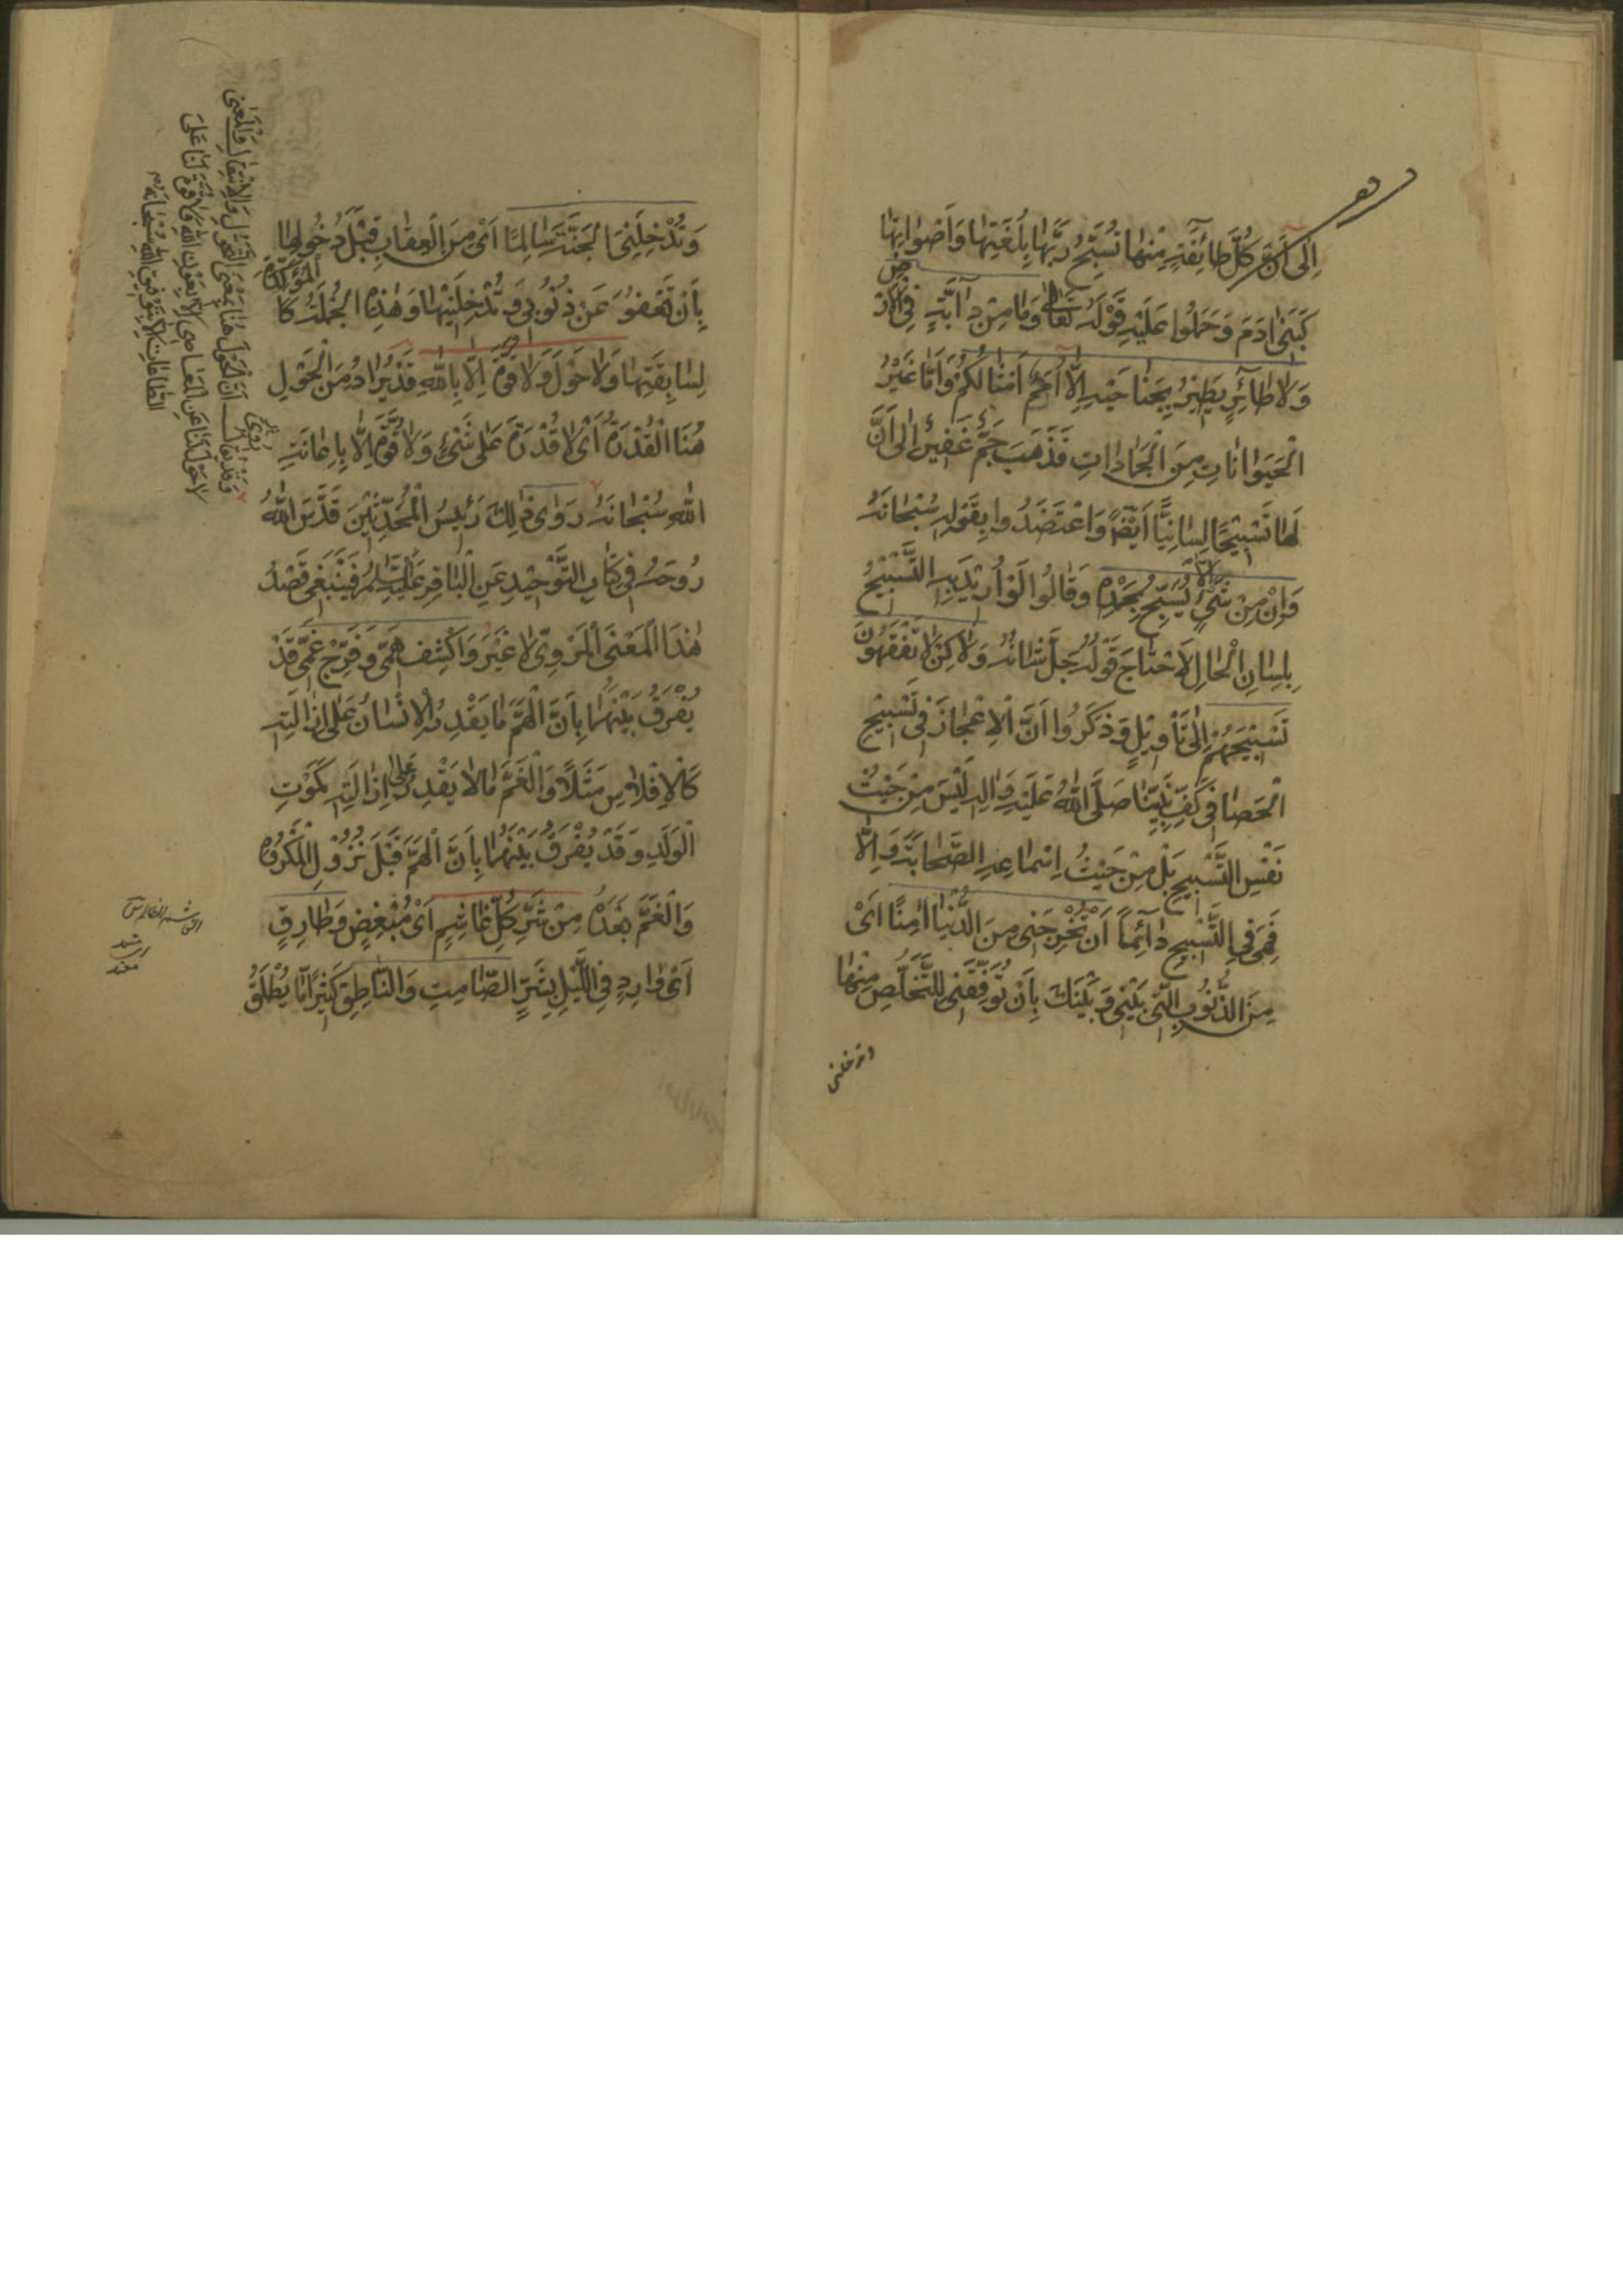 اِلىٰ اَنَّ كُلَّ طٰائِفَةٍ مِنْهٰا تُسَبِّحُ رَبَّهٰا بِلُغَتِهٰا وَاَصْوٰاتِهٰا
كَبَنى اٰدَمَ وَحَمَلُوا عَلَيْهِ قَوْلَهُ تَعٰالىٰ وَمٰا مِنْ دٰآبَّةٍ فِى الْاَرْضِ
وَلاٰ طٰائِرٍ يَطِيْرُ بِجَنٰاحَيْهِ اِلّٰا اُمَمٌ اَمْثٰالُكُمْ وَاَمّٰا غَيْرُ
الْحَيَوٰانٰاتِ مِنَ الْجَمٰادٰاتِ فَذَهَبَ جَمٌّ غَفِيْرٌ اِلىٰ اَنَّ
لَهٰا تَسْبِيْحًا لِسٰانِيًّا اَيْضًا وَاعْتَضَدُوا بِقَوْلِهِ سُبْحٰانَهُ
وَاِنْ مِنْ شَىْءٍ اِلّٰا يُسَبِّحُ بِحَمْدِهِ وَقٰالُوا لَوْ اُرِيْدَ بِهِ التَّسْبِيْحُ
بِلِسٰانِ الْحٰالِ لَاحْتٰاجَ قَوْلُهُ جَلَّ شَانُهُ وَلٰكِنْ لاٰ تَفْقَهُوْنَ
تَسْبِيْحَهُمْ اِلىٰ تَأْوِيْلٍ وَذَكَرُوا اَنَّ الْاِعْجٰازَ فِى تَسْبِيْحِ
الْحَصٰا فِى كَفِّ نَبِيِّنٰا صَلَّى اللهُ عَلَيْهِ وَاٰلِهِ لَيْسَ مِنْ حَيْثُ
نَفْسِ التَّسْبِيْحِ بَلْ مِنْ حَيْثُ اِسْمٰاعِهِ الصَّحٰابَةَ وَاِلّٰا
فَهِىَ فِى التَّسْبِيْحِ دٰائِمًا اَنْ تُخْرِجَنِى مِنَ الدُّنْيٰا اٰمِنًا اَىْ
مِنَ الذُّنُوْبِ الَّتى بَيْنِى وَبَيْنَكَ بِاَنْ تُوَفِّقَنِى لِلتَّخَلُّصِ مِنْهٰا
وتدخلنى
وَتُدْخِلَنِى الْجَنَّةَ سٰالِمًا اَىْ مِنَ الْعِقٰابِ قَبْلَ دُخُولِهٰا
بِاَنْ تَعْفُوَ عَنْ ذُنُوْبِى وَتُدْخِلَنِيْهٰا وَهٰذِهِ الْجُمْلَةُ كَالْمُؤَكِّدَةِ
لِسٰابِقَتِهٰا وَلاٰ حَوْلَ وَلاٰ قُوَّةَ اِلّٰا بِاللهِ قَدْ يُرٰادُ مِنَ الْحَوْلِ
هُنَا الْقُدْرَةُ اَىْ لاٰ قُدْرَةَ عَلىٰ شَىْءٍ وَلاٰ قُوَّةَ اِلّٰا بِاِعٰانَةِ
اللهِ سُبْحٰانَهُ رَوٰى ذٰلِكَ رَئِيْسُ الْمُحَدِّثِيْنَ قَدَّسَ اللهُ
رُوحَهُ فِى كِتٰابِ التَّوْحِيْدِ عَنِ الْبٰاقِرِ عَلَيْهِ السَّلٰمُ فَيَنْبَغِى قَصْدُ
هٰذَا الْمَعْنَى الْمَرْوِىِّ لاٰ غَيْرَ وَاكْشِفْ هَمِّى وَفَرِّجْ غَمِّى قَدْ
يُفْرَقُ بَيْنَهُمٰا بِاَنَّ الْهَمَّ مٰا يَقْدِرُ الْاِنْسٰانُ عَلىٰ اِزٰالَتِهِ
كَالْاِفْلاٰسِ مَثَلًا وَالْغَمَّ مٰا لاٰ يَقْدِرُ عَلىٰ اِزٰالَتِهِ كَمَوْتِ
الْوَلَدِ وَقَدْ يُفْرَقُ بَيْنَهُمٰا بِاَنَّ الْهَمَّ قَبْلَ نُزُوْلِ الْمَكْرُوْهِ
وَالْغَمَّ بَعْدَهُ مِنْ شَرِّ كُلِّ غٰاشِمٍ اَىْ مُبْغِضٍ وَطٰارِقٍ
اَىْ وٰارِدٍ فِى اللَّيْلِ بِشَرٍّ الصّٰامِتِ وَالنّٰاطِقِ كَثِيْرًا مّٰا يُطْلَقُ
وَقَدْ يُقٰالُ اَنَّ الْحَوْلَ هُنٰا بِمَعْنَى التَّحَوُّلِ وَالْاِنْتِقٰالِ وَالْمَعْنىٰ
لاٰ حَوْلَ لَنٰا عَنِ الْمَعٰاصِى اِلّٰا بِعَوْنِ اللهِ وَلاٰ قُوَّةَ لَنٰا عَلىٰ
الطّٰاعٰاتِ اِلّٰا بِتَوْفِيْقِ اللهِ سُبْحٰانَهُ